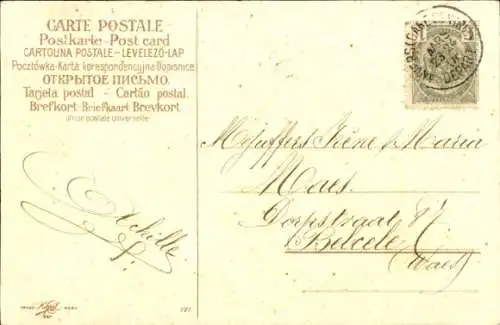 CARTE POSTALE
Postkarte - Post card
CARTOLINA POSTALE - LEVELEZŐ-LAP
Pocztówka - Karta korespondencyjna Dopisnice
ОТКРЫТОЕ ПИСЬМО.
Tarjeta postal - Cartão postal.
Brefkort - Briefkaart Brevkort
Union postale universelle
Achille
Mejuffers Irène & Maria
Maes.
Dorpstraat 87
Belcele
(Waes)
727